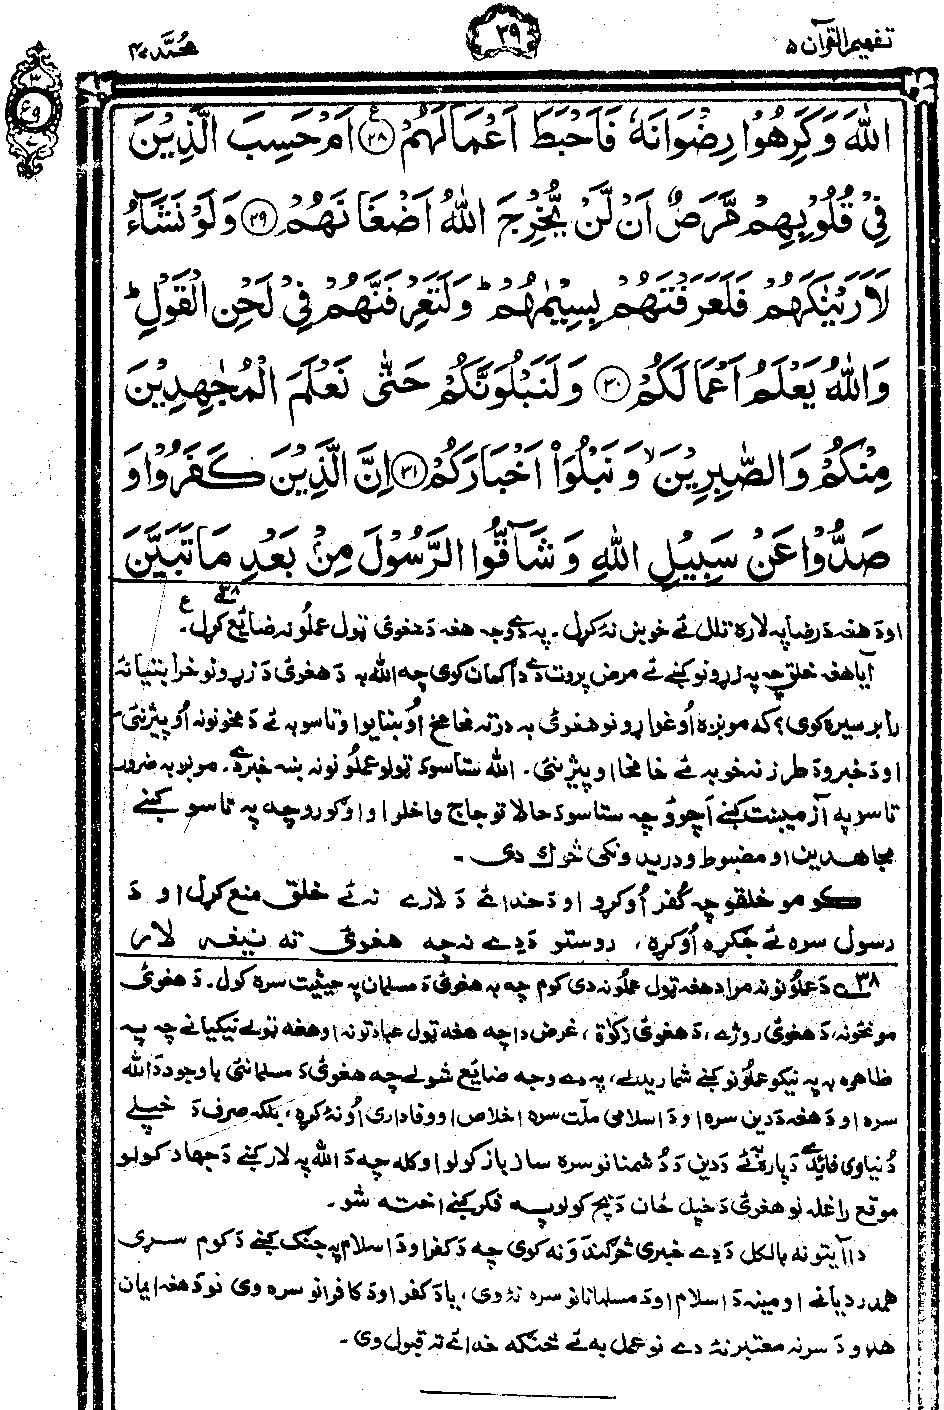 تفهیم القرآن ۵
۳۹
محمد ۴۷
اللهَ وَكَرِهُوْا رِضْوَانَهٗ فَاَحْبَطَ اَعْمَالَهُمْ ﴿۲۸﴾ اَمْ حَسِبَ الَّذِيْنَ
فِيْ قُلُوْبِهِمْ مَّرَضٌ اَنْ لَّنْ يُّخْرِجَ اللهُ اَضْغَانَهُمْ ﴿۲۹﴾ وَلَوْ نَشَآءُ
لَاَرَيْنٰكَهُمْ فَلَعَرَفْتَهُمْ بِسِيْمٰهُمْ ؕ وَلَتَعْرِفَنَّهُمْ فِيْ لَحْنِ الْقَوْلِ ؕ
وَاللهُ يَعْلَمُ اَعْمَالَكُمْ ﴿۳۰﴾ وَلَنَبْلُوَنَّكُمْ حَتّٰى نَعْلَمَ الْمُجٰهِدِيْنَ
مِنْكُمْ وَالصّٰبِرِيْنَ ۙ وَنَبْلُوَا۠ اَخْبَارَكُمْ ﴿۳۱﴾ اِنَّ الَّذِيْنَ كَفَرُوْا وَ
صَدُّوْا عَنْ سَبِيْلِ اللهِ وَشَآقُّوا الرَّسُوْلَ مِنْۢ بَعْدِ مَا تَبَيَّنَ
او د هغه د رضا په لاره تلل ئے خوښ نۀ کړل. په دے وجه هغه د هغوئ ټول عملونه ضائع کړل. ۳۸ ع
آیا هغه خلق چه په زړونو کښے ئے مرض پروت دے دا ګمان کوی چه الله به د هغوئ د زړونو خرابتیا نۀ
رابرسیره کوی؟ که مونږه اوغواړو نو هغوئ به درته مخامخ اوښایو او تاسو به ئے د مخونونه اوپیژنئ
او د خبرو د طرز نه خو به ئے خامخا اوپیژنئ. الله ستاسو د ټولو عملونو نه ښه خبر دے. مونږ به ضرور
تاسو په آزمیښت کښے اچوو چه ستاسو د حالاتو جاج واخلو او اوګورو چه په تاسو کښے
مجاهدین او مضبوط ودریدونکی څوک دی.
کومو خلقو چه کُفر اوکړو او د خدائے د لارے نه ئے خلق منع کړل او د
رسول سره ئے جګړه اوکړه، روستو د دے نه چه هغوئ ته نیغه لار
۳۸ د عملونو نه مراد هغه ټول عملونه دی کوم چه به هغوئ د مسلمان په حیثیت سره کول. د هغوئ
مونځونه، د هغوئ روژے، د هغوئ زکوٰة، غرض دا چه هغه ټول عبادتونه او هغه ټولے نیکیانے چه په
ظاهره به په نیکو عملونو کښے شماریدلے، په دے وجه ضائع شولے چه هغوئ د مسلمانئ باوجود د الله
سره او د هغه د دین سره او د اسلامی ملّت سره اخلاص او وفاداری اونۀ کړه، بلکه صرف د خپلے
دُنیاوی فائدے د پاره ئے د دین د دُشمنانو سره ساز باز کولو او کله چه د الله په لار کښے د جهاد کولو
موقع راغله نو هغوئ د خپل ځان د بچ کولو په فکر کښے اخته شو.
دا آیتونه بالکل د دے خبرې څرګندوَنه کوی چه د کفر او د اسلام په جنګ کښے د کوم سړی
همدردیانے او مینه د اسلام او د مسلمانانو سره نۀ وی، یا د کفر او د کافرانو سره وی نو د هغه ایمان
هډو د سر نه معتبر نۀ دے نو عمل به ئے څنګه خدائے ته قبول وی.